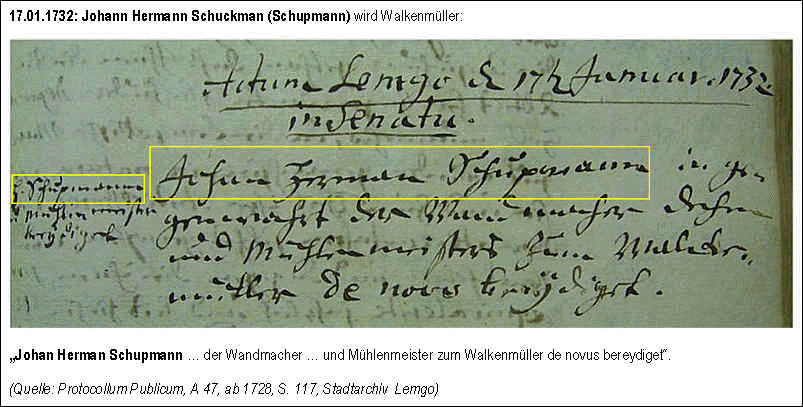 17.01.1732: Johann Hermann Schuckman (Schupmann) wird Walkenmüller:
Actum Lemgo d 17t Januar. 1732
in Senatu.
Johan Herman Schupmann in
Schupmanns
der Wandmacher
und Mühlenmeisters zum Walcken-
beeydiget
müller de novo beeydiget.
„Johan Herman Schupmann … der Wandmacher … und Mühlenmeister zum Walkenmüller de novus bereydiget“.
(Quelle: Protocollum Publicum, A 47, ab 1728, S. 117, Stadtarchiv Lemgo)